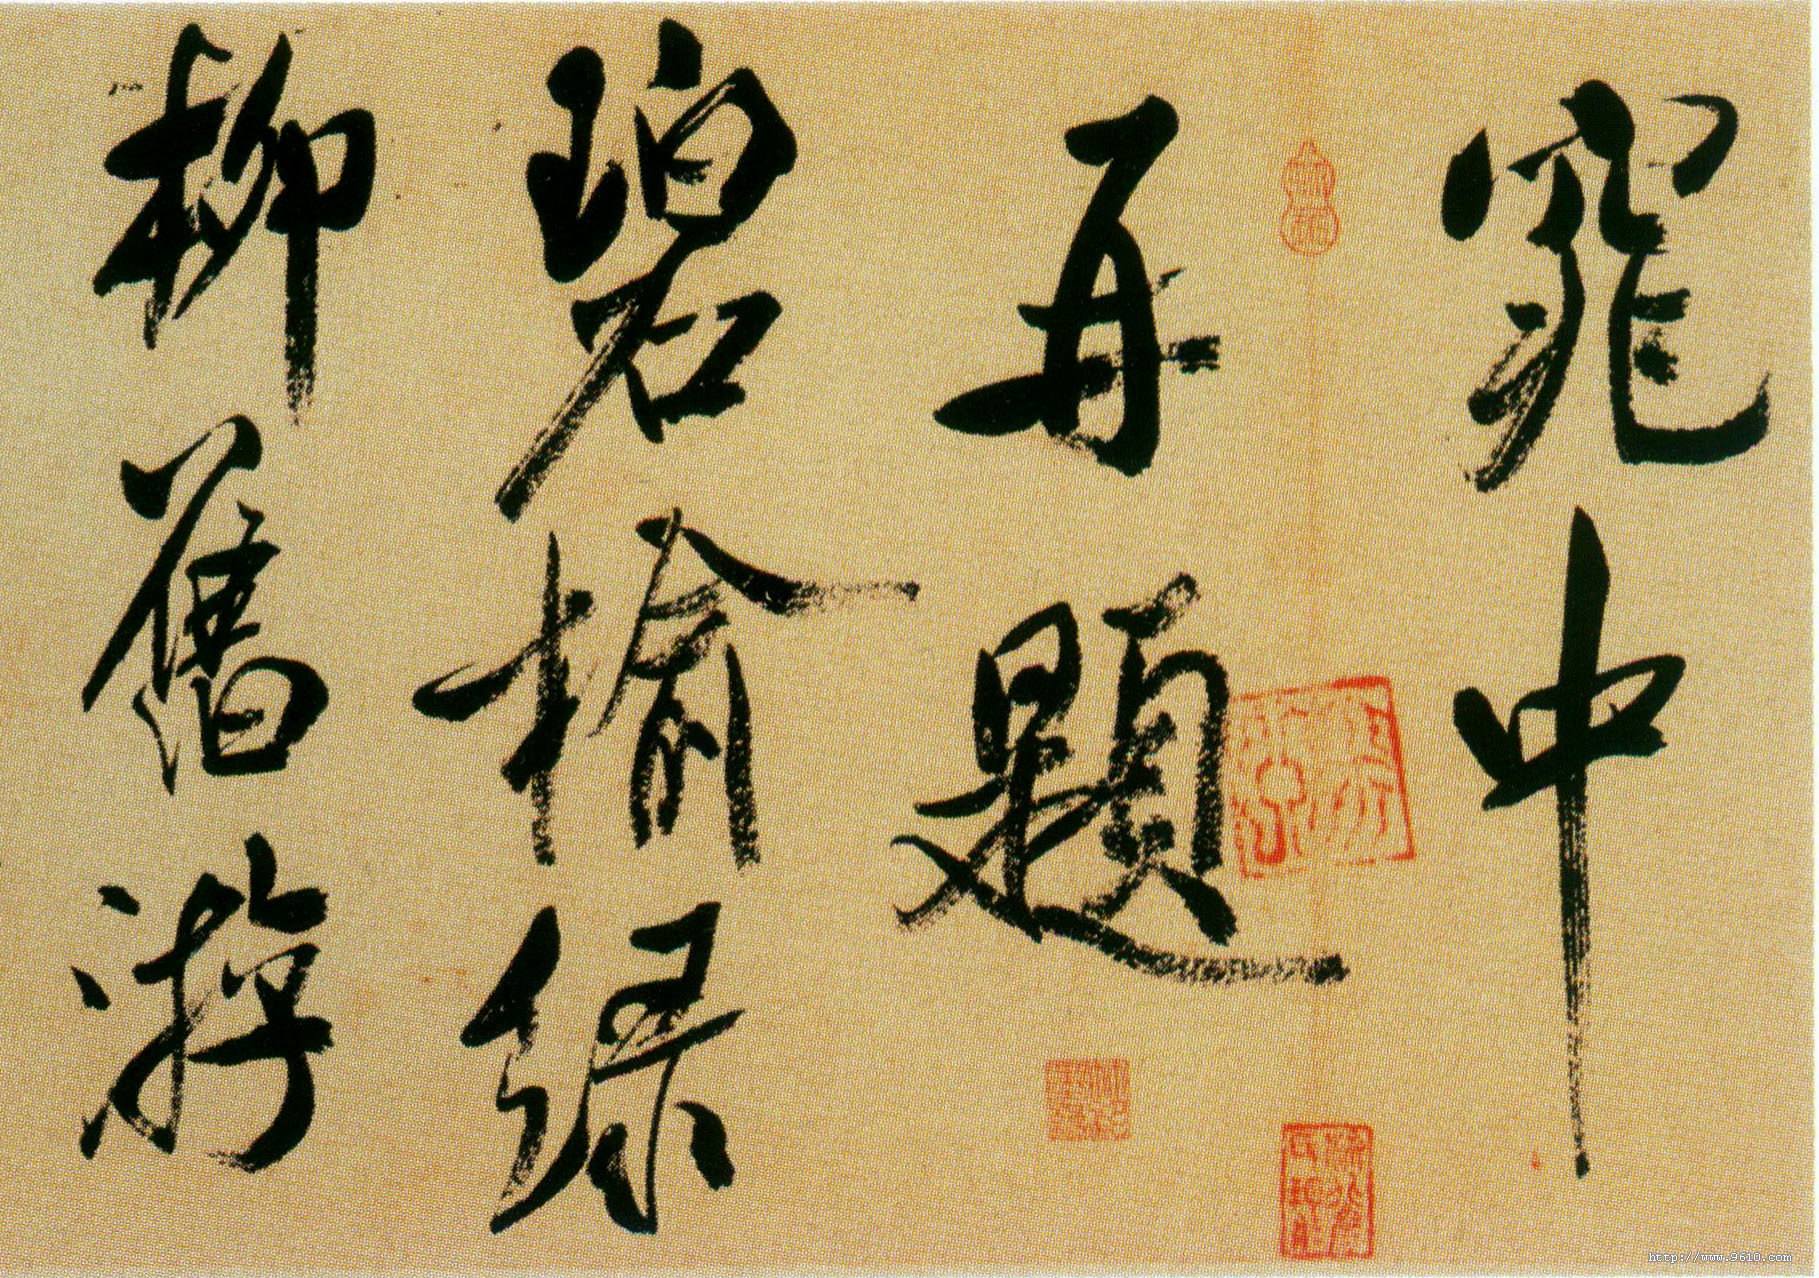 窕中
再題
碧榆綠
柳舊游
http://www.9610.com